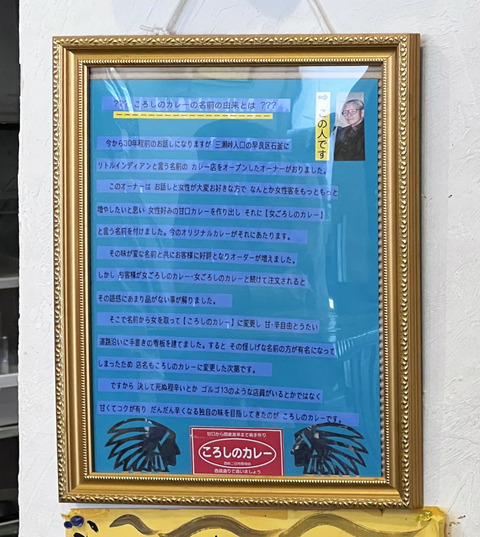 ??? ころしのカレーの名前の由来とは ???
⇨ この人です
今から30年程前のお話しになりますが 三瀬峠入口の早良区石釜に
リトルインディアンと言う名前の カレー店をオープンしたオーナーがおりました。
このオーナーは お話しと女性が大変お好きな方で なんとか女性客をもっともっと
増やしたいと思い 女性好みの甘口カレーを作り出し それに【女ごろしのカレー】
と言う名前を付けました。今のオリジナルカレーがそれにあたります。
その味が変な名前と共にお客様に好評となりオーダーが増えました。
しかし お客様が女ごろしのカレー・女ごろしのカレーと続けて注文されると
その語感にあまり品がない事が解りました。
そこで名前から女を取って【ころしのカレー】に変更し 甘・辛自由とうたい
道路沿いに手書きの看板を建てました。すると その怪しげな名前の方が有名になって
しまったため 店名もころしのカレーに変更した次第です。
ですから 決して死ぬ程辛いとか ゴルゴ13のような店員がいるとかではなく
甘くてコクが有り だんだん辛くなる独自の味を目指してきたのが ころしのカレーです。
ころしのカレー